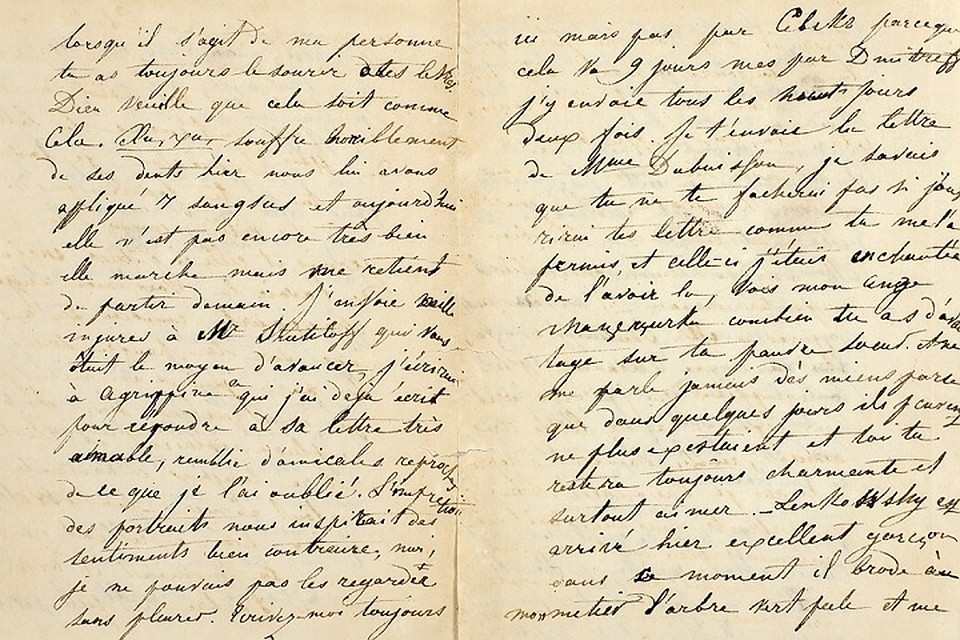 lorsqu'il s'agit de ma personne
tu as toujours le sourir des
Dieu veuille que cela soit comme
Cela. souffre horriblement
de ses dents hier nous lui avons
appliqué 7 sangsus et aujourd'hui
elle n'est pas encore très bien
elle marche mais me retient
de partir demain. J'envoie mille
injures à Mr qui vous
ôtait le moyen d'avancer, j'écrirai
à Agrippine qui j'ai déjà écrit
pour repondre à sa lettre très
aimable, remplie d'amicales
de ce que je l'ai oublié. L'impression
des portraits nous inspirait des
sentiments bien contraire, moi,
je ne pouvais pas les regarder
sans pleurer. Ecrivez-moi toujours
ici mais pas par parceque
cela va 9 jours mes par
j'y envoie tous les jours
deux fois. Je t'envoie la lettre
de Mme Dubuisson, je savais
que tu ne te facherai pas si
tes lettre comme tu me l'a
permis, et celle-ci j'étais enchantée
de l'avoir lu, Vois mon ange
combien tu as
tage sur ta pauvre soeur.
me parle jamais des miens parce
que dans quelques jours ils
ne plus existaient et toi tu
restera toujours charmante et
surtout aimer. - Lenkowsky est
arrivé hier excellent garçon
dans ce moment il brode au
mon metier l'arbre vert et me